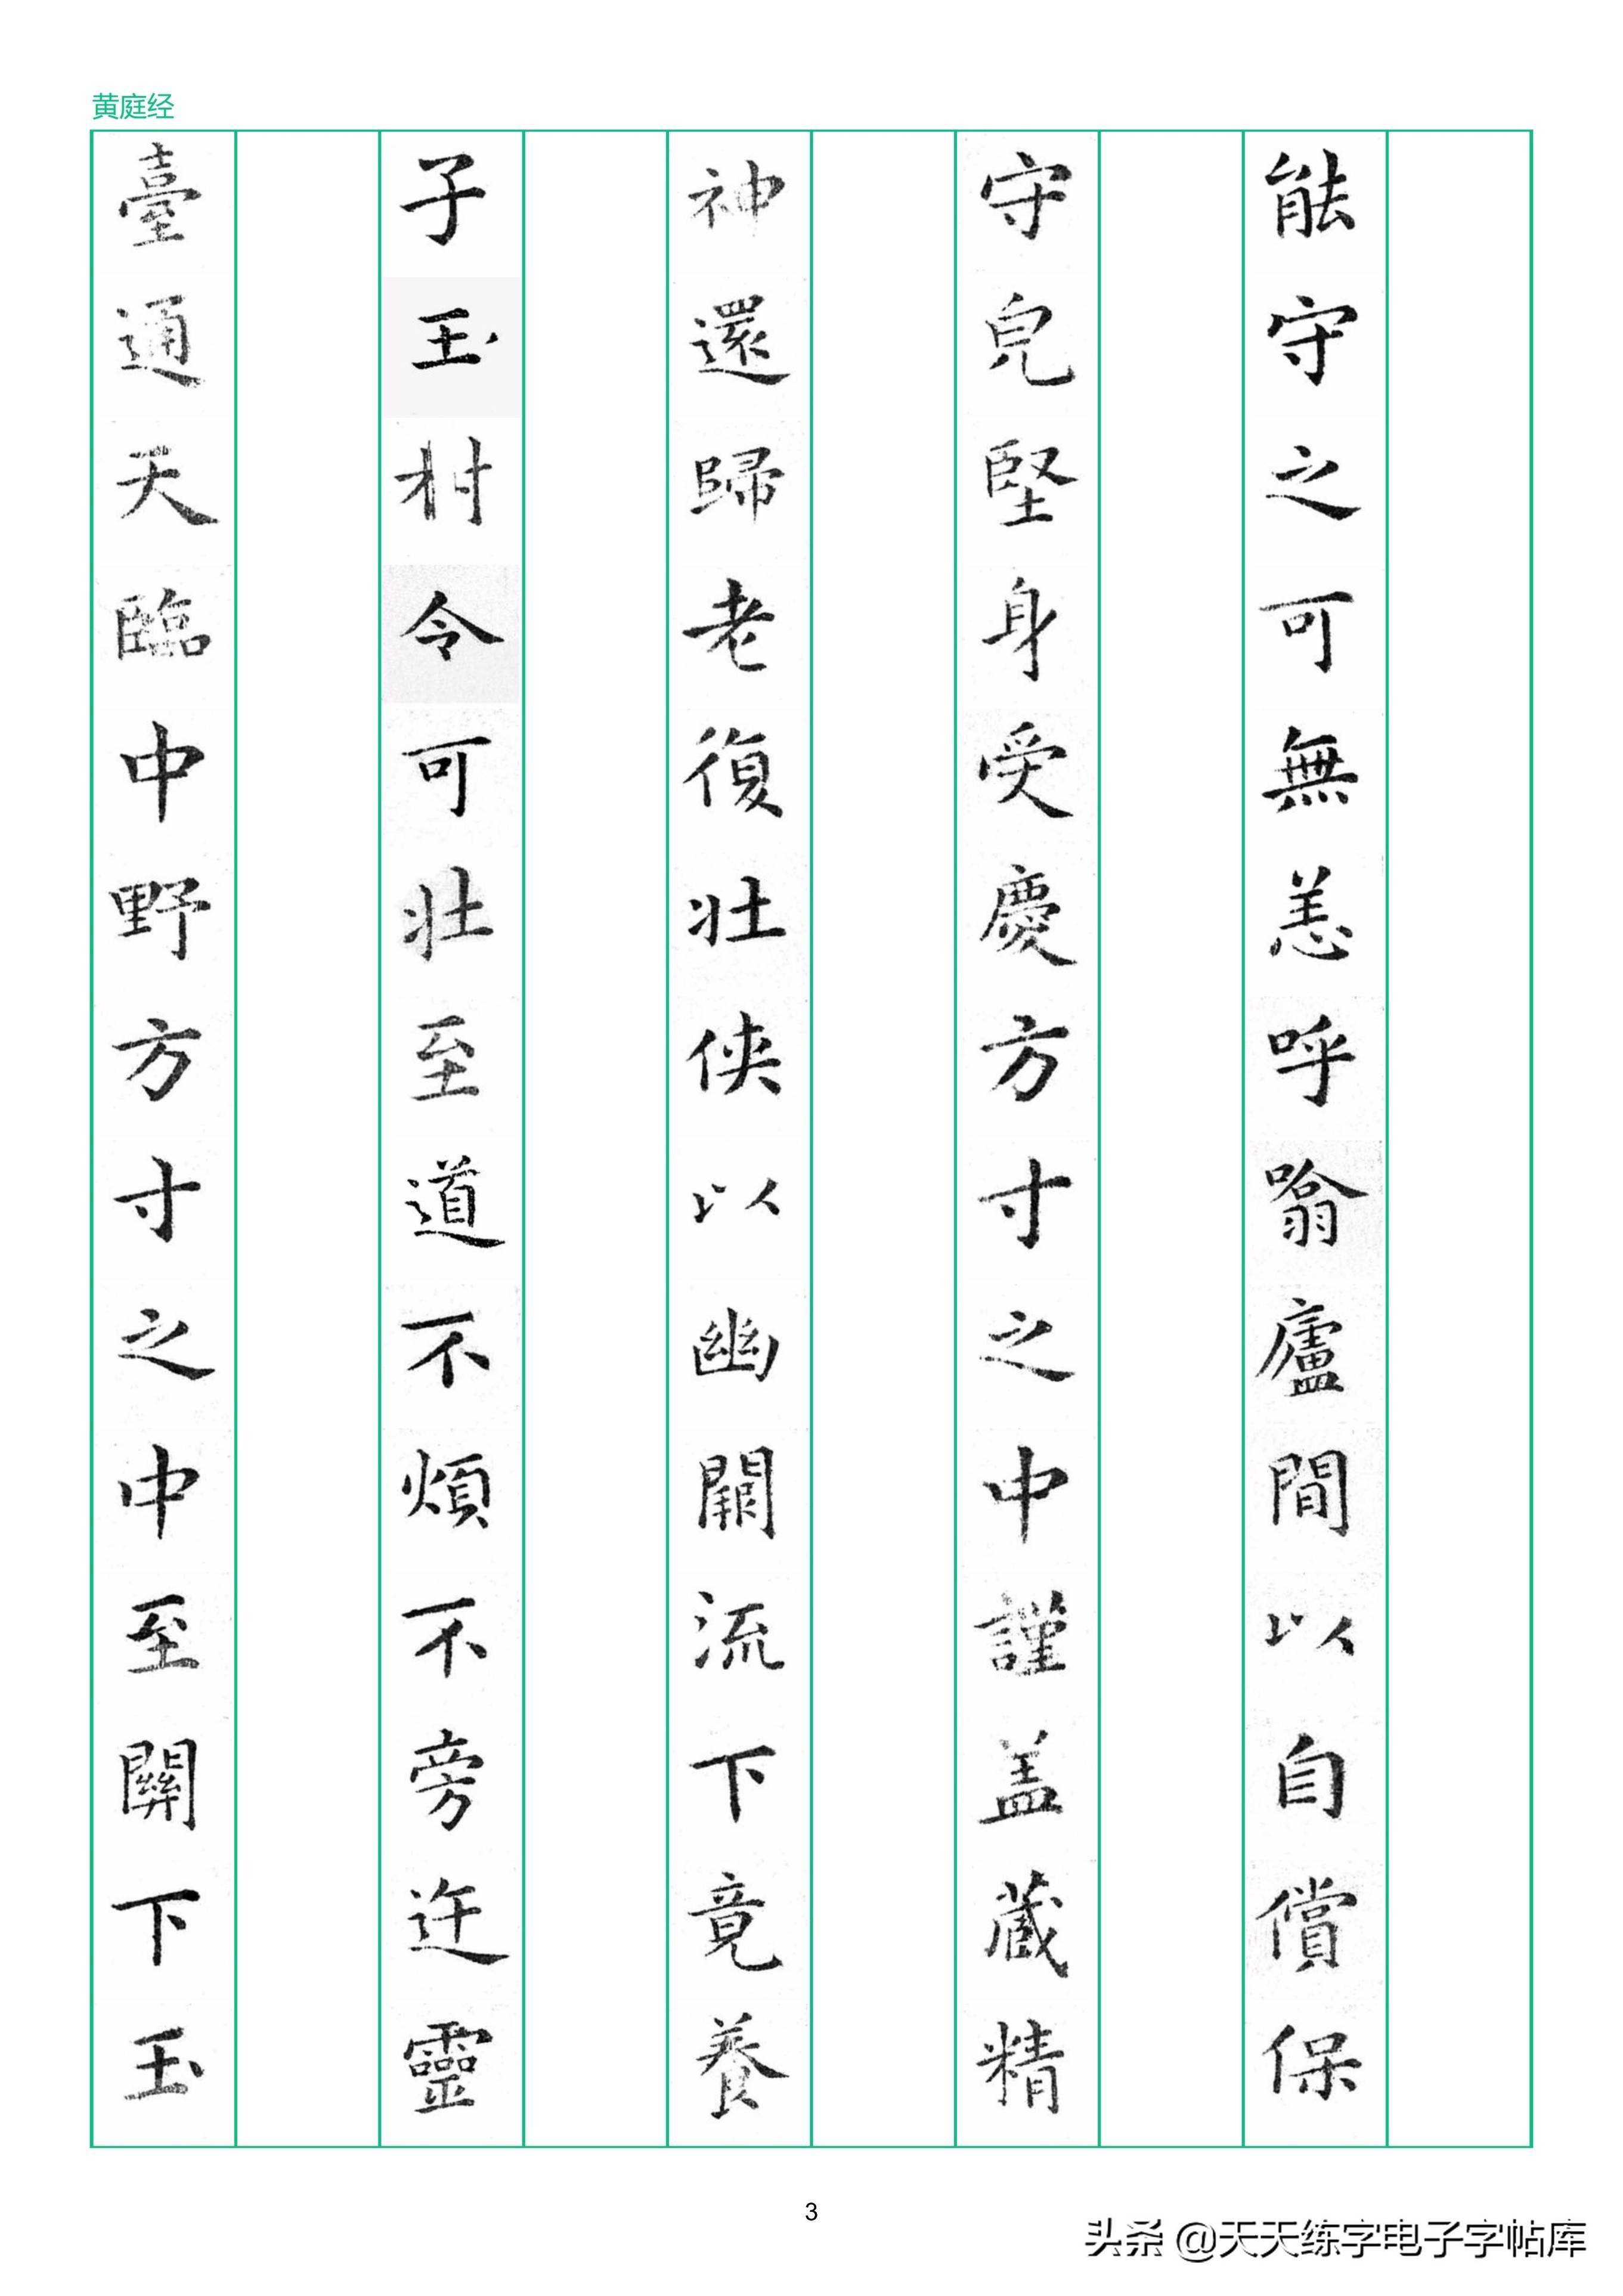 黄庭经
能守之可無恙呼噏廬間以自償保
守皃堅身受慶方寸之中謹盖藏精
神還歸老復壯俠以幽闕流下竟養
子玉樹令可壯至道不煩不旁迕靈
臺通天臨中野方寸之中至關下玉
3
头条 @天天练字电子字帖库